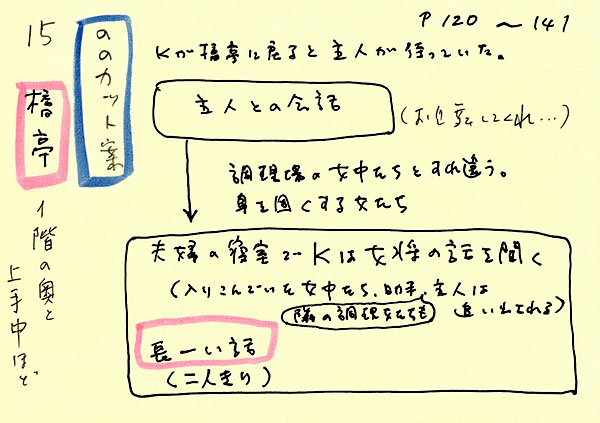 P 120 〜 141
15
橋亭
のカット案
1階の奥と
上手中ほど
Kが橋亭に戻ると主人が待っていた。
主人との会話
調理場の女中たちとすれ違う。
身を固くする女たち
夫婦の寝室でKは女将の話を聞く
(入りこんでいた女中たち、助手、主人は
隣の調理女たちも
追い出される)
長ーい話
(二人きり)